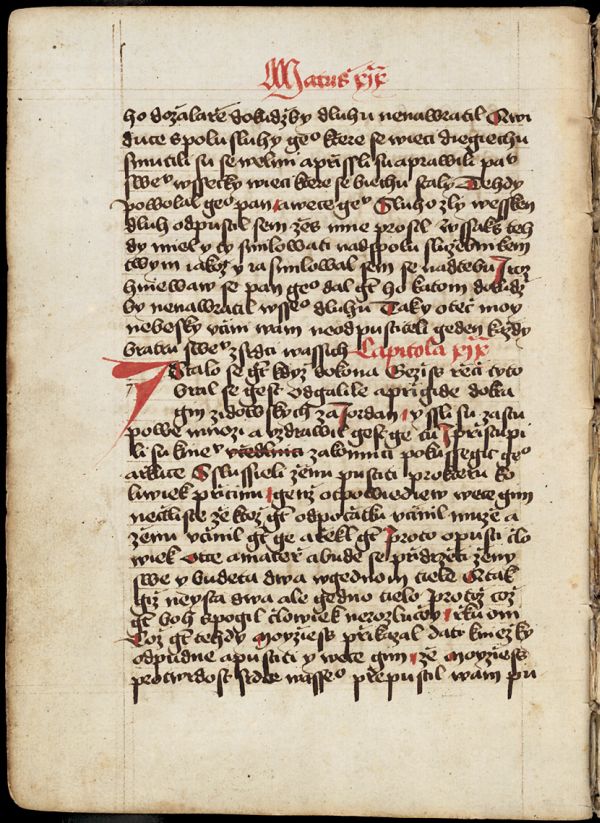 Matus xix
ho dozalarze dokudzby dluhu nenawratil Uwi
duce spolu sluhy geo ktere se wieci diegiechu
smutili su se welmi a przissli su a prawili panu
sweo wssecky wieci ktere se biechu staly Tehdy
powolal geo pan a wece geo Sluho zly wessken
dluh odpustil sem zes mne prosil zyssaks teh
dy miel y ty smilowati nad spolu sluzebnikem
twym iakoz y ia smilowal sem se nad tebu I toz
hniewaw se pan geo dal gt ho katom dokudz
by nenawratil wsseo dluhu Taky otec moy
nebesky uczini wam neodpustiteli geden kazdy
bratru sweo z srdci wassich Capitola xix
Stalo se gt kdyz dokona Gezis rzeczi tyto
bral se gest od galile a przigide do kra
gin zidowskych za Jordan y ssli su zastu
powe mnozi a vzdrawil gest ge tu I przistupi
li su k nieo zakonnici pokussegic geo
a rkuce Slussieli zenu pustiti pro kteru ko
liwiek przicinu genz otpowiediew wece gim
necztliste ze ktoz gt odpoczatku uczinil muze a
zenu uczinil gt ge a rzekl gt Proto opusti czlo
wiek otce a materz a bude se przidrzeti zeny
swe y budeta dwa w gednom tiele A tak
giz neysta dwa ale gedno tielo Protoz coz
gt boh spogil czlowiek nerozluczoy rku om
Coz gt tehdy Moyziess przikazal dati knizky
odpudne a pustiti y wece gim ze Moyziess
pro twrdost srdce wasseo przepustil wam pu